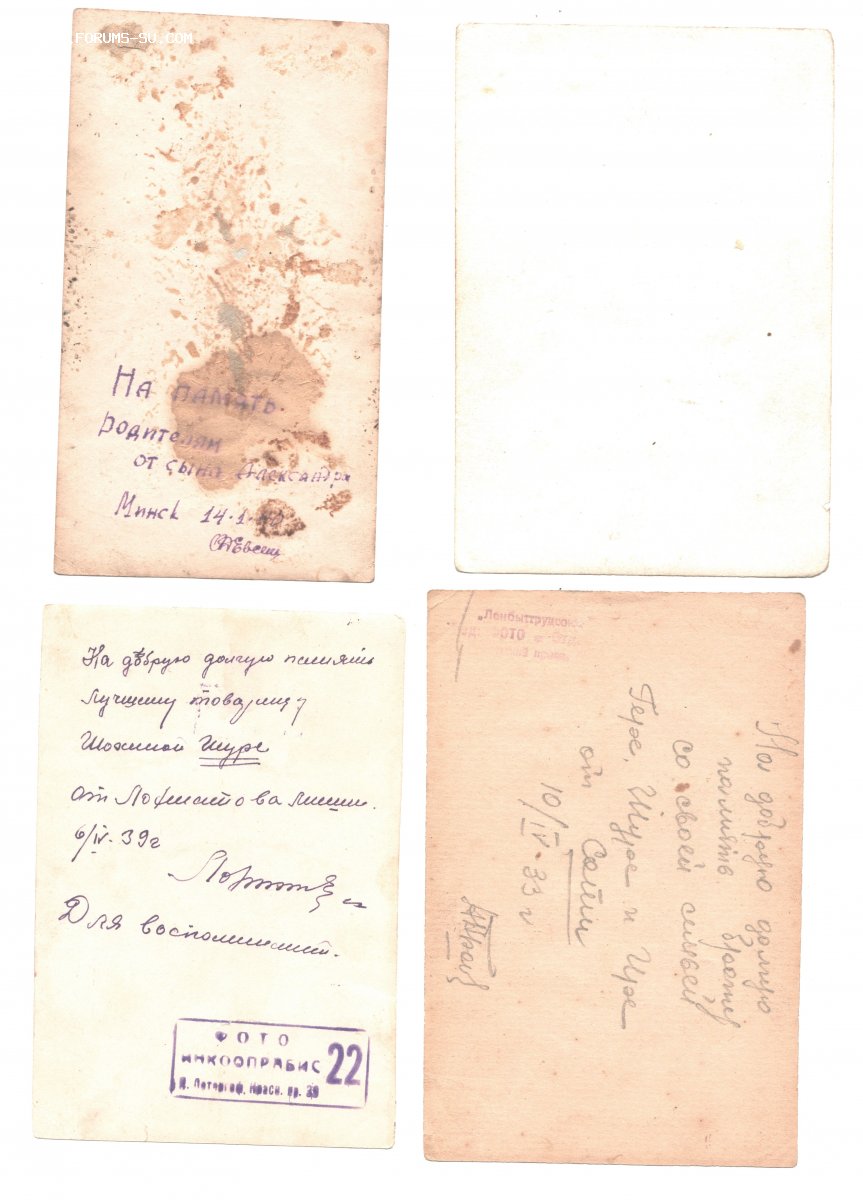 FORUMS-SU.COM
На память
родителям
от сына Александра
Минск 14·1·40
На добрую долгую память
лучшему товарищу
Шуре
от Лохматова Миши.
6/IV-39г
Для воспоминания.
ФОТО
ИНКООПРАБИС 22
Петергоф. Красн. пр. 39
„Ленбыттрудсоюз"
ФОТО
На добрую долгую
память
со своей семьёй
Гере, Шуре и Ире
от Сати
10/IV-33 г